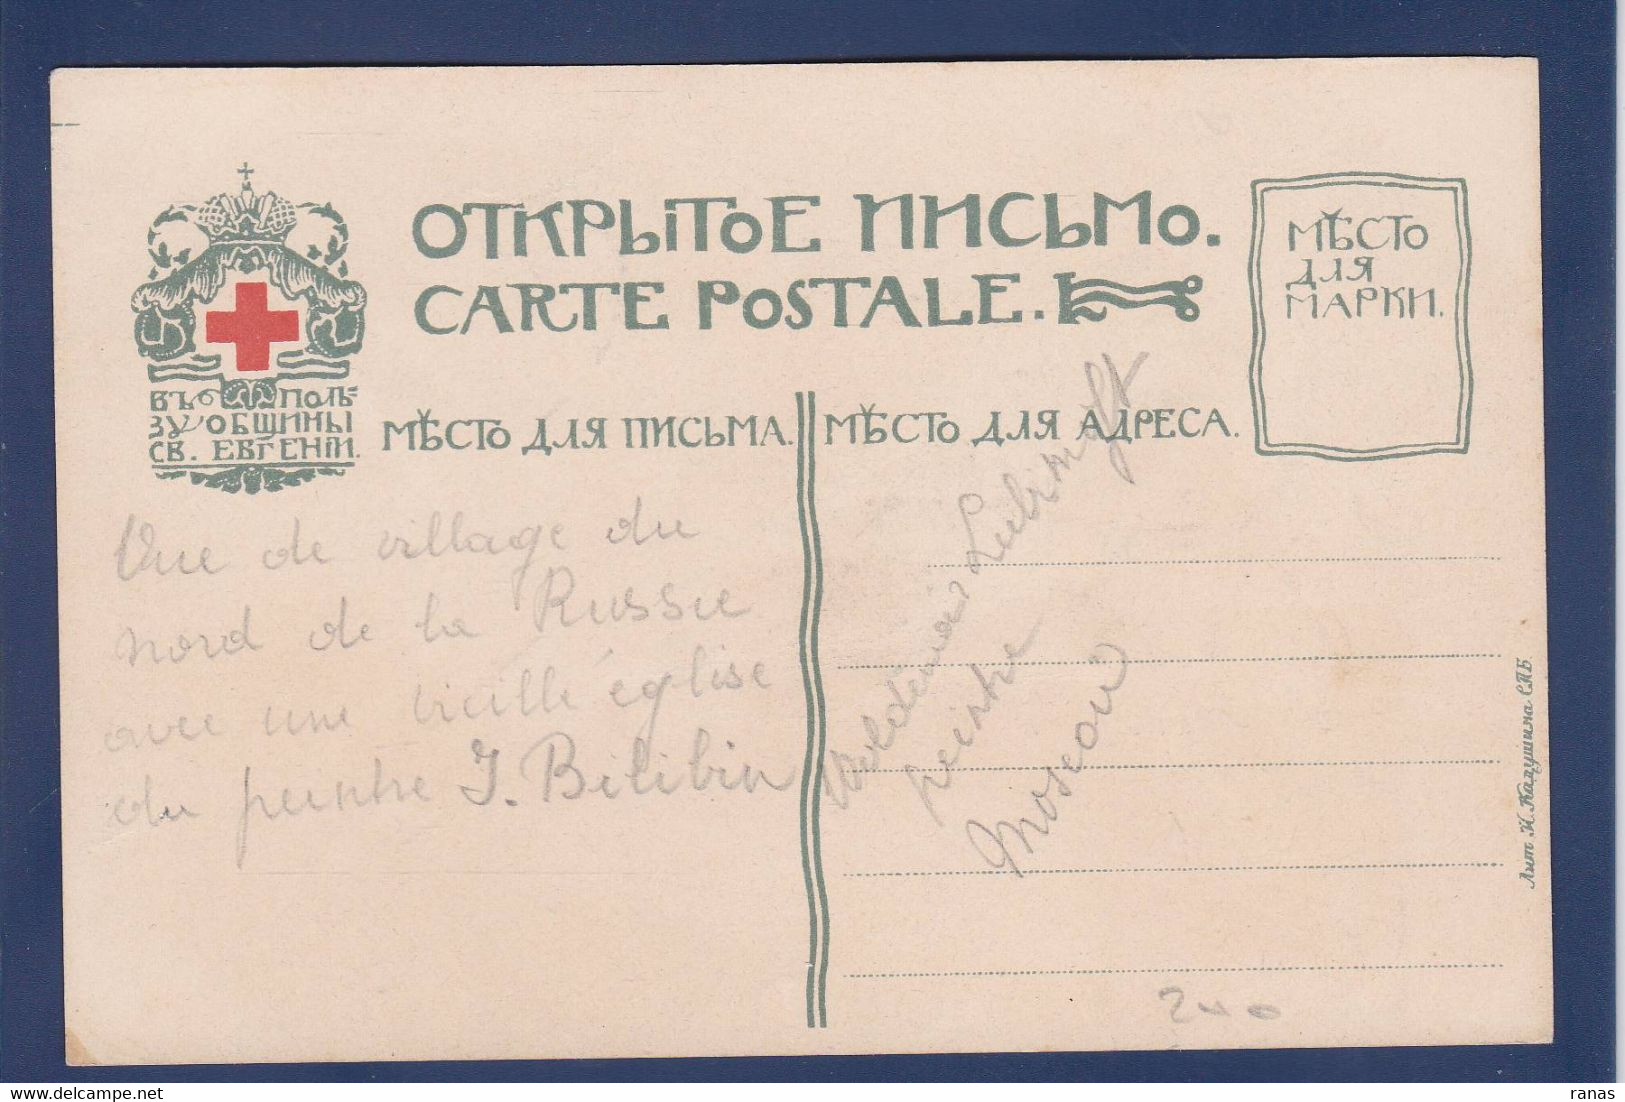 ОТКРЫТОЕ ПИСЬМО.
CARTE POSTALE.
МѢСТО
ДЛЯ
МАРКИ.
ВЪ ПОЛЬ-
ЗУ ОБЩИНЫ
СВ. ЕВГЕНІИ.
МѢСТО ДЛЯ ПИСЬМА.
МѢСТО ДЛЯ АДРЕСА.
Vue de village du
nord de la Russie
avec une vieille église
du peintre J. Bilibin
Woldemar
peintre
Moscou
Лит. Н. Кадушина СПБ.
delcampe.net
ranas